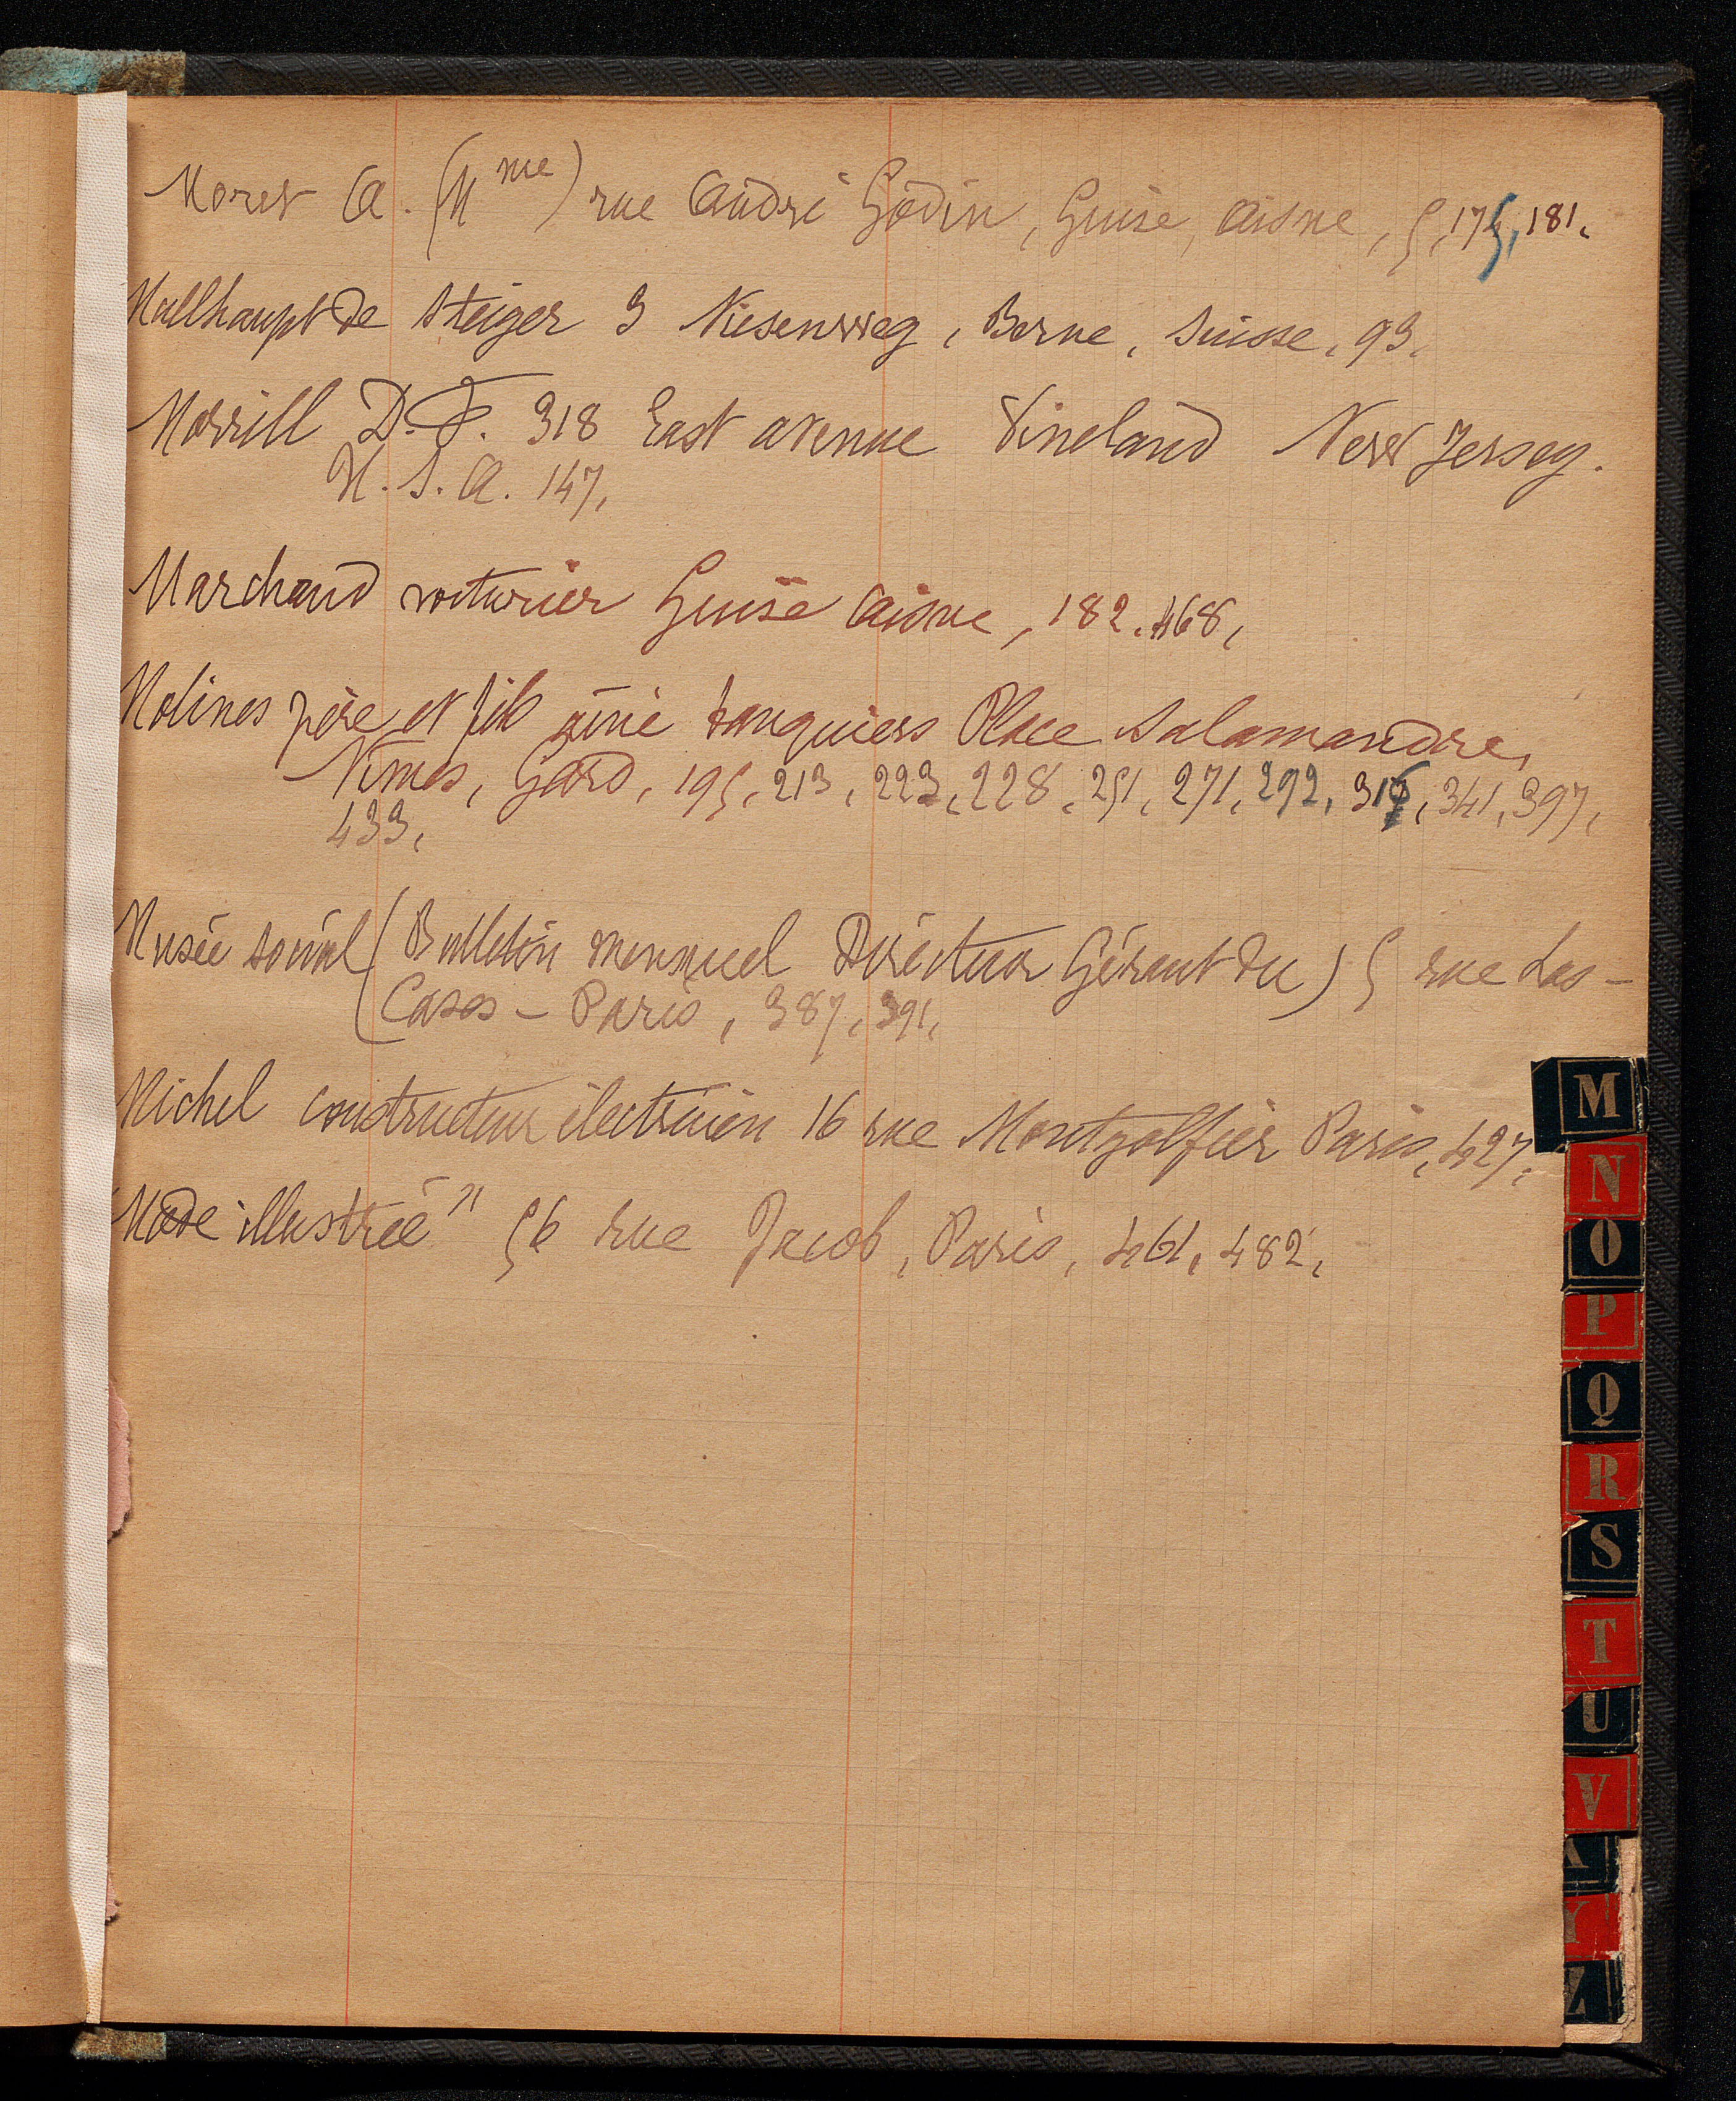 Moret A. (Mme) rue André Godin, Guise, Aisne, 5, 175, 181,
Mullhaupt de Steiger 3 Niesenweg, Berne, Suisse, 93,
Morrill D. F. 318 East avenue Vineland New Jersey.
U. S. A. 147,
Marchand voiturier Guise Aisne, 182, 468,
Molines père et fils aîné banquiers Place Salamandre,
Nîmes, Gard, 195, 213, 223, 228, 251, 271, 292, 316, 341, 397,
433,
Musée social (Bulletin mensuel Directeur Gérant du) 5 rue Las-
Cases - Paris, 387, 391,
Michel constructeur électricien 16 rue Montgolfier Paris, 427,
"Mode illustrée" 56 rue Jacob, Paris, 461, 482,
M
N
O
P
Q
R
S
T
U
V
X
Y
Z